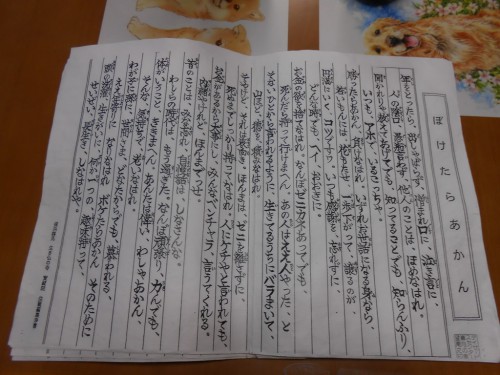 ぼけたらあかん
年をとったら、出しゃばらず、憎まれ口に、泣き言に、
人の陰口、愚痴言わず、他人のことは、ほめなはれ。
聞かれりゃ、教えてあげても、知ってることでも、知らんふり、
いつも、アホで、いるこっちゃ。
勝ったらあかん、負けなはれ、いずれお世話になる身なら、
若いもんには、花もたせ、一歩下がって、譲るのが、
円満にいく、コツですワ、いつも感謝を、忘れずに、
どんな時でも、ヘイ、おおきに。
お金の欲を捨てなはれ、なんぼゼニカネあってても、
死んだら持って行けまへん、あの人はええ人やった、と
そないひとから言われるように、生きてるうちにバラまいて、
山ほど、徳を、積みなはれ。
そやけど、それは表向き、ほんまは、ゼニを離さずに、
死ぬまでしっかり、持ってなはれ、人にケチやと言われても、
お金があるから大事にし、みんなベンチャラ、言うてくれる。
内緒やけれど、ほんまでっせ。
昔のことは、みな忘れ、自慢話は、しなさんな、
わしらの時代は、もう過ぎた、なんぼ頑張り、力んでも、
体がいうこと、ききまへん、あんたは偉い、わしゃあかん、
そんな、気持ちで、老いなはれ。
わが子に孫に、世間さま、どなたからでも、慕われる、
ええ年寄りに、なりなはれ、ボケたらあかん、そのために
頭の洗濯、生きがいに、何か一つの、趣味持って、
せいぜい、長生き、しなはれや。